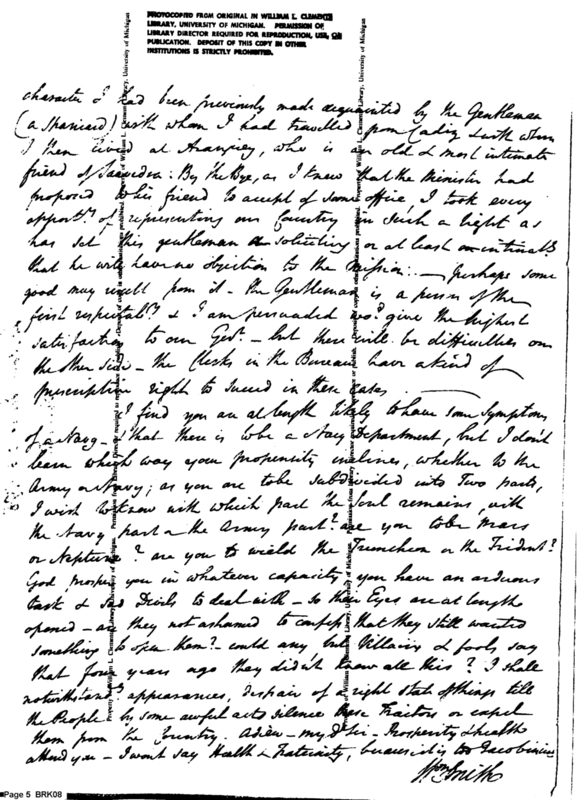 PHOTOCOPIED FROM ORIGINAL IN WILLIAM L. CLEMENTS
LIBRARY, UNIVERSITY OF MICHIGAN. PERMISSION OF
LIBRARY DIRECTOR REQUIRED FOR REPRODUCTION, USE, OR
PUBLICATION. DEPOSIT OF THIS COPY IN OTHER
INSTITUTIONS IS STRICTLY PROHIBITED.
character I had been previously made acquainted by the Gentleman
(a Spaniard) with whom I had travelled from Cadiz & with whom
I then lived at Aranjuez, who is an old & most intimate
friend of Saavedra: By the Bye, as I knew that the Minister had
proposed to his friend to accept of some office, I took every
opporty. of representing our Country in such a light as
has set this gentleman a soliciting or at least
that he will have no objection to the mission: — perhaps some
good may result from it — the Gentleman is a person of the
first respectaby. & I am persuaded wod. give the highest
satisfaction to our Govt. — but there will be difficulties on
the other side — the Clerks in the Bureau have a kind of
prescriptive right to succeed in these cases —
I find you are at length likely to have some symptoms
of a Navy — that there is to be a Navy Department, but I don't
learn which way your propensity inclines, whether to the
Army or Navy; as you are to be subdivided into Two parts,
I wish to know with which part the Soul remains, with
the Navy part or the Army part? are you to be Mars
or Neptune? are you to wield the Truncheon or the Trident?
God prosper you in whatever capacity you have an arduous
task & sad Devils to deal with — So their Eyes are at length
opened — are they not ashamed to confess that they still wanted
something to open them? — could any but Villains & fools say
that four years ago they didn't know all this? I shall
notwithstandg. appearances, despair of a right state of things till
the People by some awful acts silence these Traitors or expel
them from the Country. Adieu — my dr. Sir — Prosperity & health
attend you — I wont say Health & Fraternity, because it is too Jacobinical
Wm Smith
Page 5 BRK08